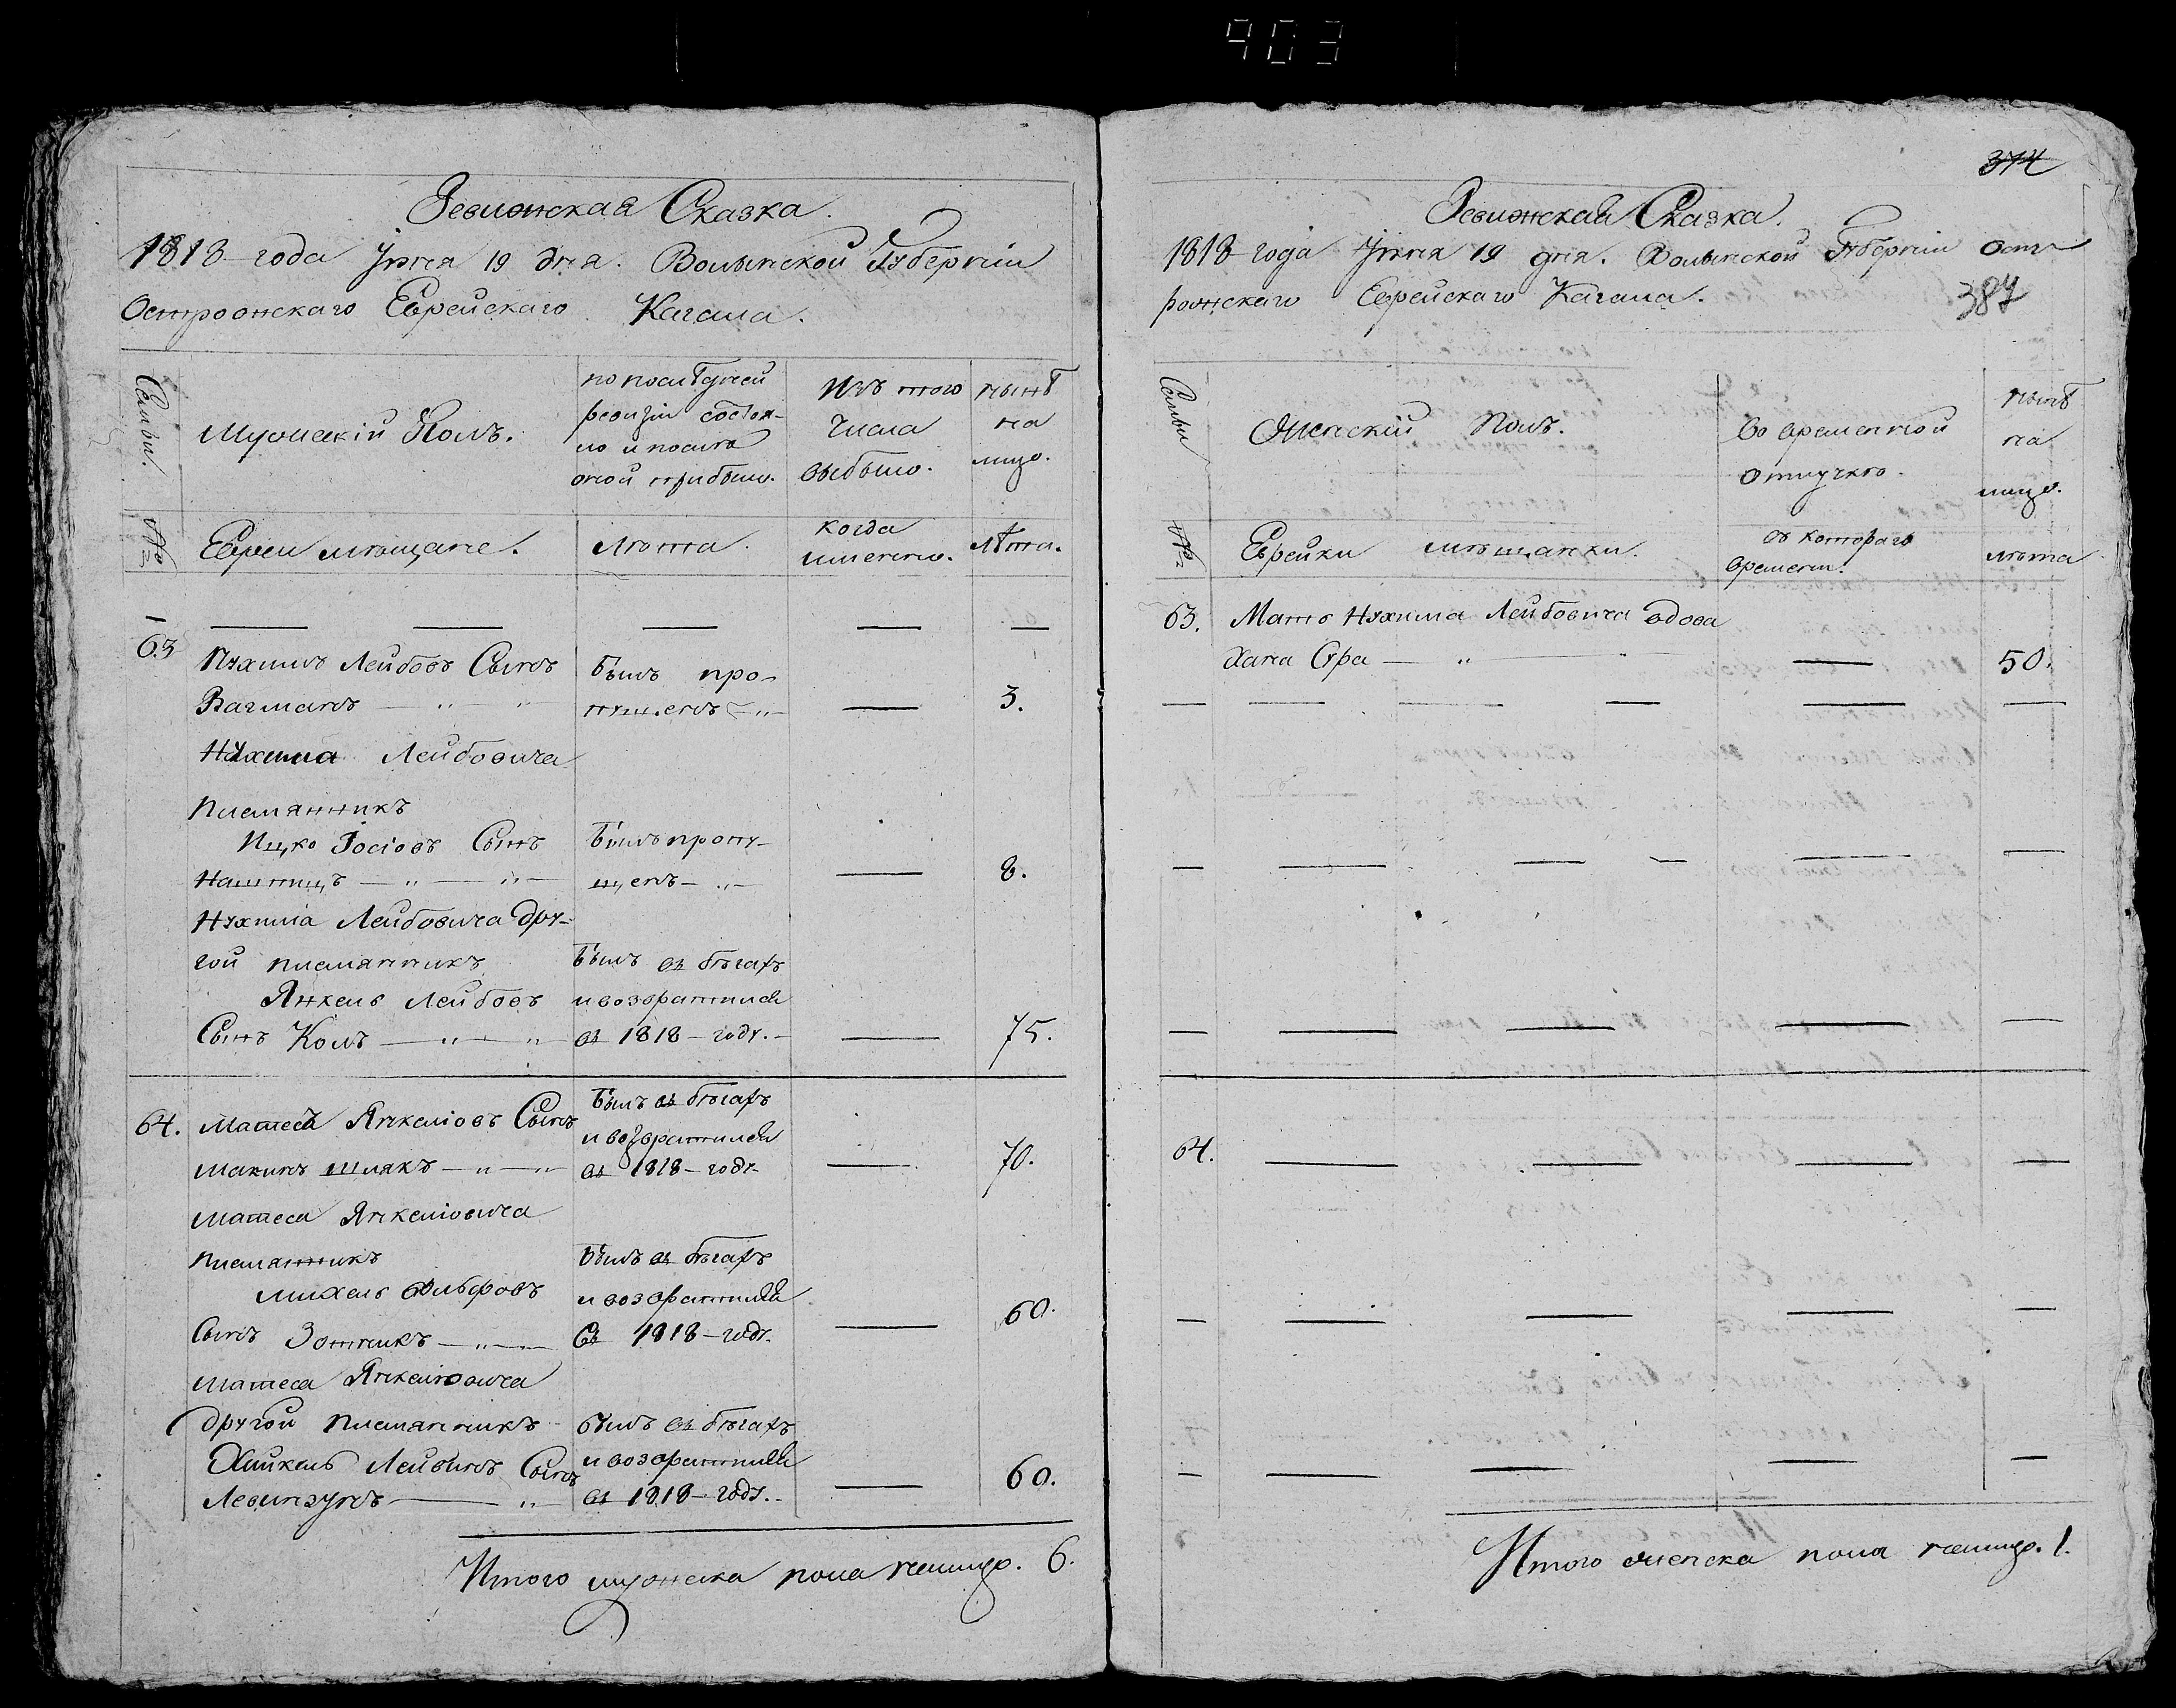 903
Ревизская Сказка.
1818 года Іюня 19 дня. Волынской Губерніи
Острожскаго Еврейскаго Кагала.
Семьи.
Мужескій Полъ.
по последней
ревизіи состоя-
ло и после
оной прибыло.
Изъ того
числа
выбыло.
нынѣ
на
лицо.
№
Евреи мѣщане.
лѣта.
когда
именно.
лѣта.
63
Нухимъ Лейбовъ Сынъ
Вагманъ
былъ про-
пущенъ
3.
Нухима Лейбовича
племянникъ
Ицко Іосіовъ Сынъ
былъ пропу-
щенъ
8.
Нухима Лейбовича дру-
гой племянникъ
Янкель Лейбовъ
Сынъ Колъ
былъ въ бѣгахъ
и возвратился
въ 1818 году.
75.
64.
Матесъ Янкеліовъ Сынъ
былъ въ бѣгахъ
и возвратился
въ 1818 году.
70.
Матеса Янкеліовича
племянникъ
Михель Вольфовъ
Сынъ
былъ въ бѣгахъ
и возвратился
въ 1818 году.
60.
Матеса Янкеліовича
другой племянникъ
Хайкель Лейбинъ Сынъ
Левинзунъ
былъ въ бѣгахъ
и возвратился
въ 1818 году.
60.
Итого мужеска пола налицо. 6.
374
Ревизская Сказка.
1818 года Іюня 19 дня. Волынской Губерніи Ост-
рожскаго Еврейскаго Кагала.
387
Семьи
Женскій Полъ.
Во временной
отлучке.
нынѣ
на
лицо.
№
Еврейки мѣщанки.
съ котораго
времени.
лѣта
63.
Мать Нухима Лейбовича вдова
Хана Сура
50.
64.
Итого женска пола налицо. 1.